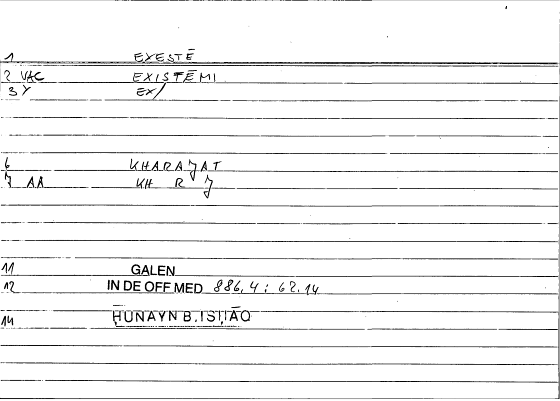 1 EXESTĒ
2 VAC EXISTĒMI
3 Y EX/
6 KHARAJAT
7 AA KH R J
11 GALEN
12 IN DE OFF MED 886,4 : 62.14
14 ḤUNAYN B. ISḤĀQ